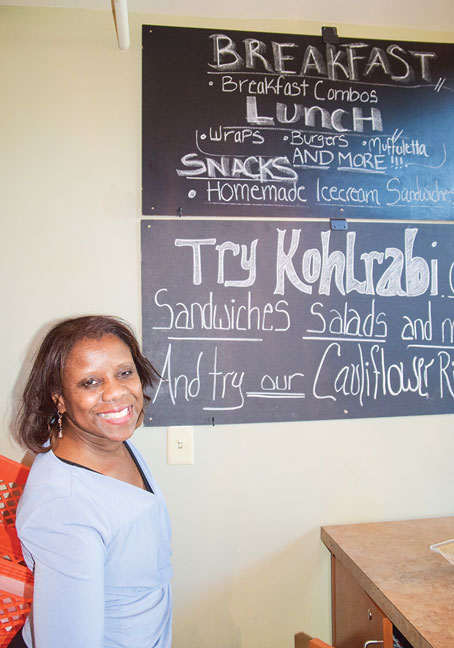 BREAKFAST
• Breakfast Combos
LUNCH
• Wraps • Burgers • Muffuletta
SNACKS AND MORE !!!
• Homemade Icecream Sandwiches
Try Kohlrabi
Sandwiches salads and
And try our Cauliflower